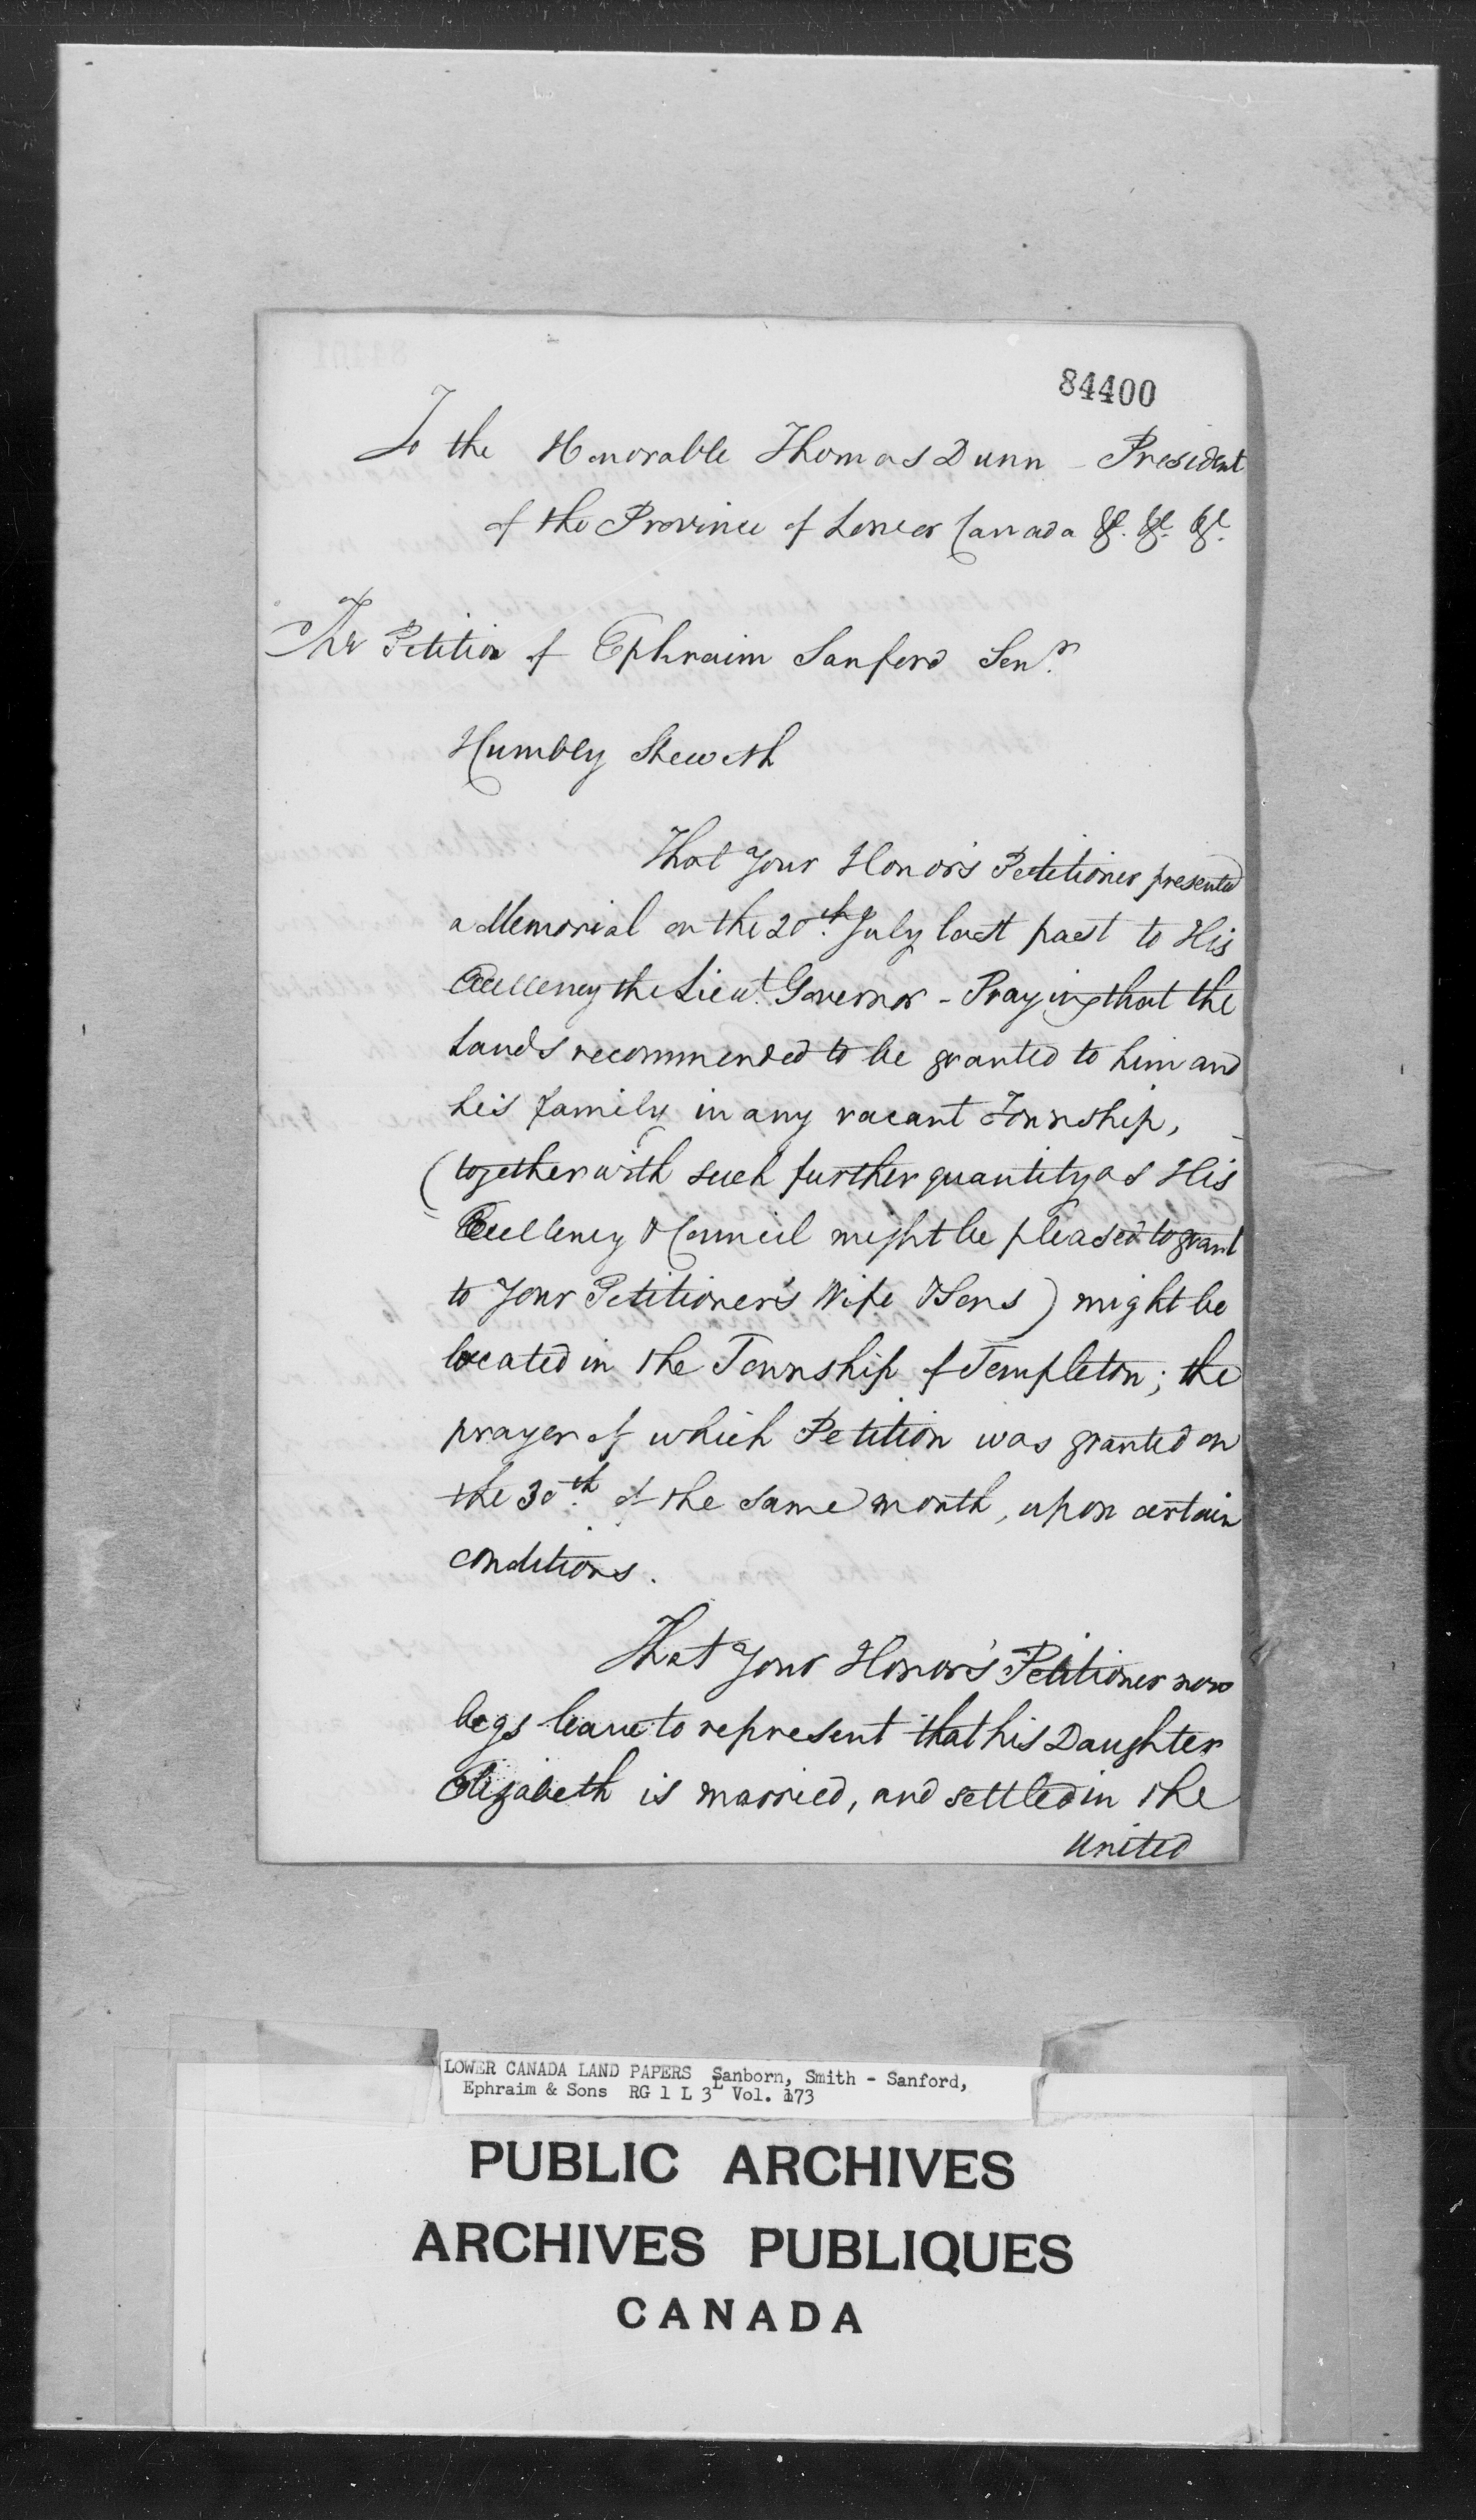 84400
To the Honorable Thomas Dunn - President
of the Province of Lower Canada &c. &c. &c.
The Petition of Ephraim Sanford Senr.
Humbly Sheweth
That Your Honor's Petitioner presented
a Memorial on the 20th. July last past to His
Excellency the Lieut. Governor - Praying that the
Lands recommended to be granted to him and
his family in any vacant Township,
(together with such further quantity as His
Excellency & Council might be pleased to grant
to Your Petitioner's Wife & Sons) might be
located in the Township of Templeton; the
prayer of which Petition was granted on
the 30th. of the same month, upon certain
conditions.
That Your Honor's Petitioner now
begs leave to represent that his Daughter
Elizabeth is married, and settled in the
United
LOWER CANADA LAND PAPERS Sanborn, Smith - Sanford,
Ephraim & Sons RG 1 L 3L Vol. 173
PUBLIC ARCHIVES
ARCHIVES PUBLIQUES
CANADA